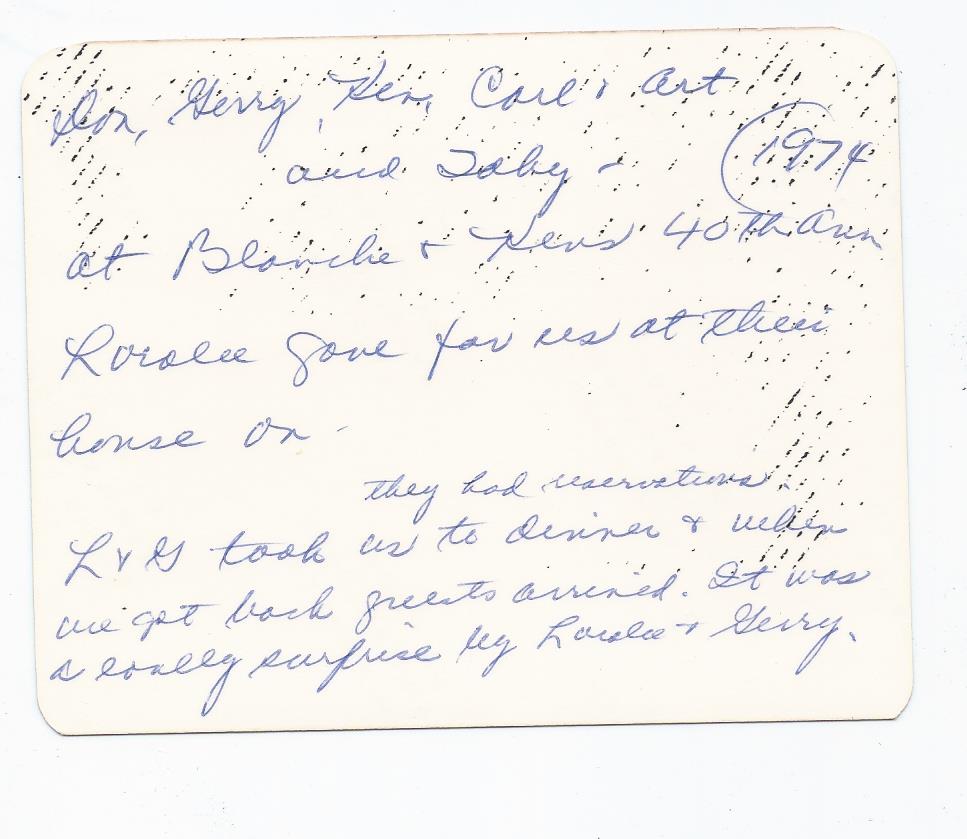 Don, Gerry, Ken, Carl & Art
and Toby - 1974
at Blanche & Kens 40th Ann
Loralee gave for us at their
house on -
they had reservations.
L & G took us to dinner & when
we got back guests arrived. It was
a lovely surprise by Loralee & Gerry.